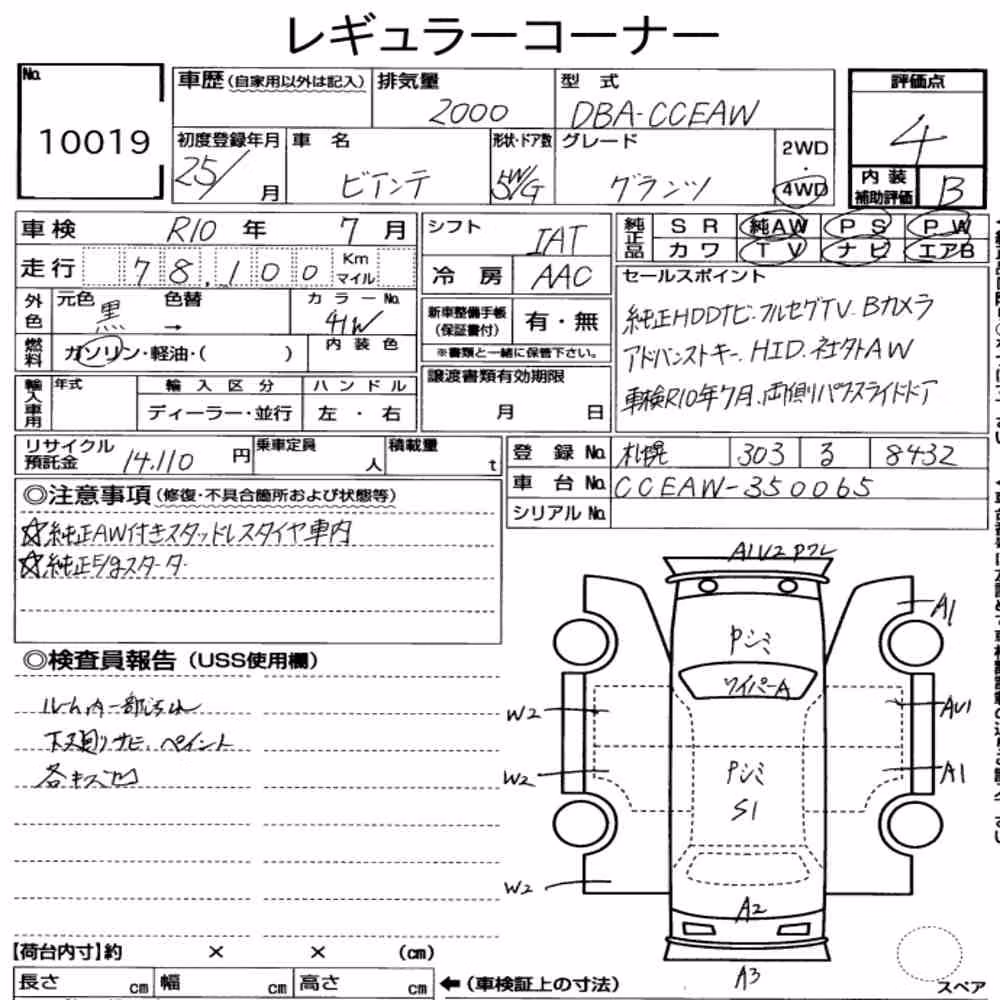 レギュラーコーナー
No. 10019
車歴(自家用以外は記入) 排気量 2000 型式 DBA-CCEAW
評価点 4
初度登録年月 25/ 月 車名 ビアンテ 形状・ドア数 5W/G グレード グランツ 2WD・4WD
内装補助評価 B
車検 R10年 7月 シフト IAT
純正品 SR 純AW PS PW
カワ TV ナビ エアB
走行 78,100 Km マイル 冷房 AAC
外色 元色 黒 色替 → カラーNo. 41W
燃料 ガソリン・軽油・( ) 内装色
新車整備手帳(保証書付) 有・無
※書類と一緒に保管下さい。
セールスポイント
純正HDDナビ・フルセグTV・Bカメラ
アドバンストキー、HID、社外AW
車検R10年7月、両側パワスライドドア
輸入車用 年式 輸入区分 ハンドル
ディーラー・並行 左・右
譲渡書類有効期限
月 日
リサイクル預託金 14.110円 乗車定員 人 積載量 t
登録No. 札幌 303 る 8432
車台No. CCEAW-350065
シリアルNo.
◎注意事項(修復・不具合箇所および状態等)
☆純正AW付きスタッドレスタイヤ車内
☆純正E/gスターター
◎検査員報告(USS使用欄)
ルーム内一部汚れ
下廻りサビ、ペイント
各キズ凹
A1 U2 Pワレ
A1
Pシミ
ワイパーA
W2
AU1
W2
Pシミ
A1
S1
W2
A2
A3
【荷台内寸】約 × × (cm)
長さ cm 幅 cm 高さ cm ←(車検証上の寸法)
スペア